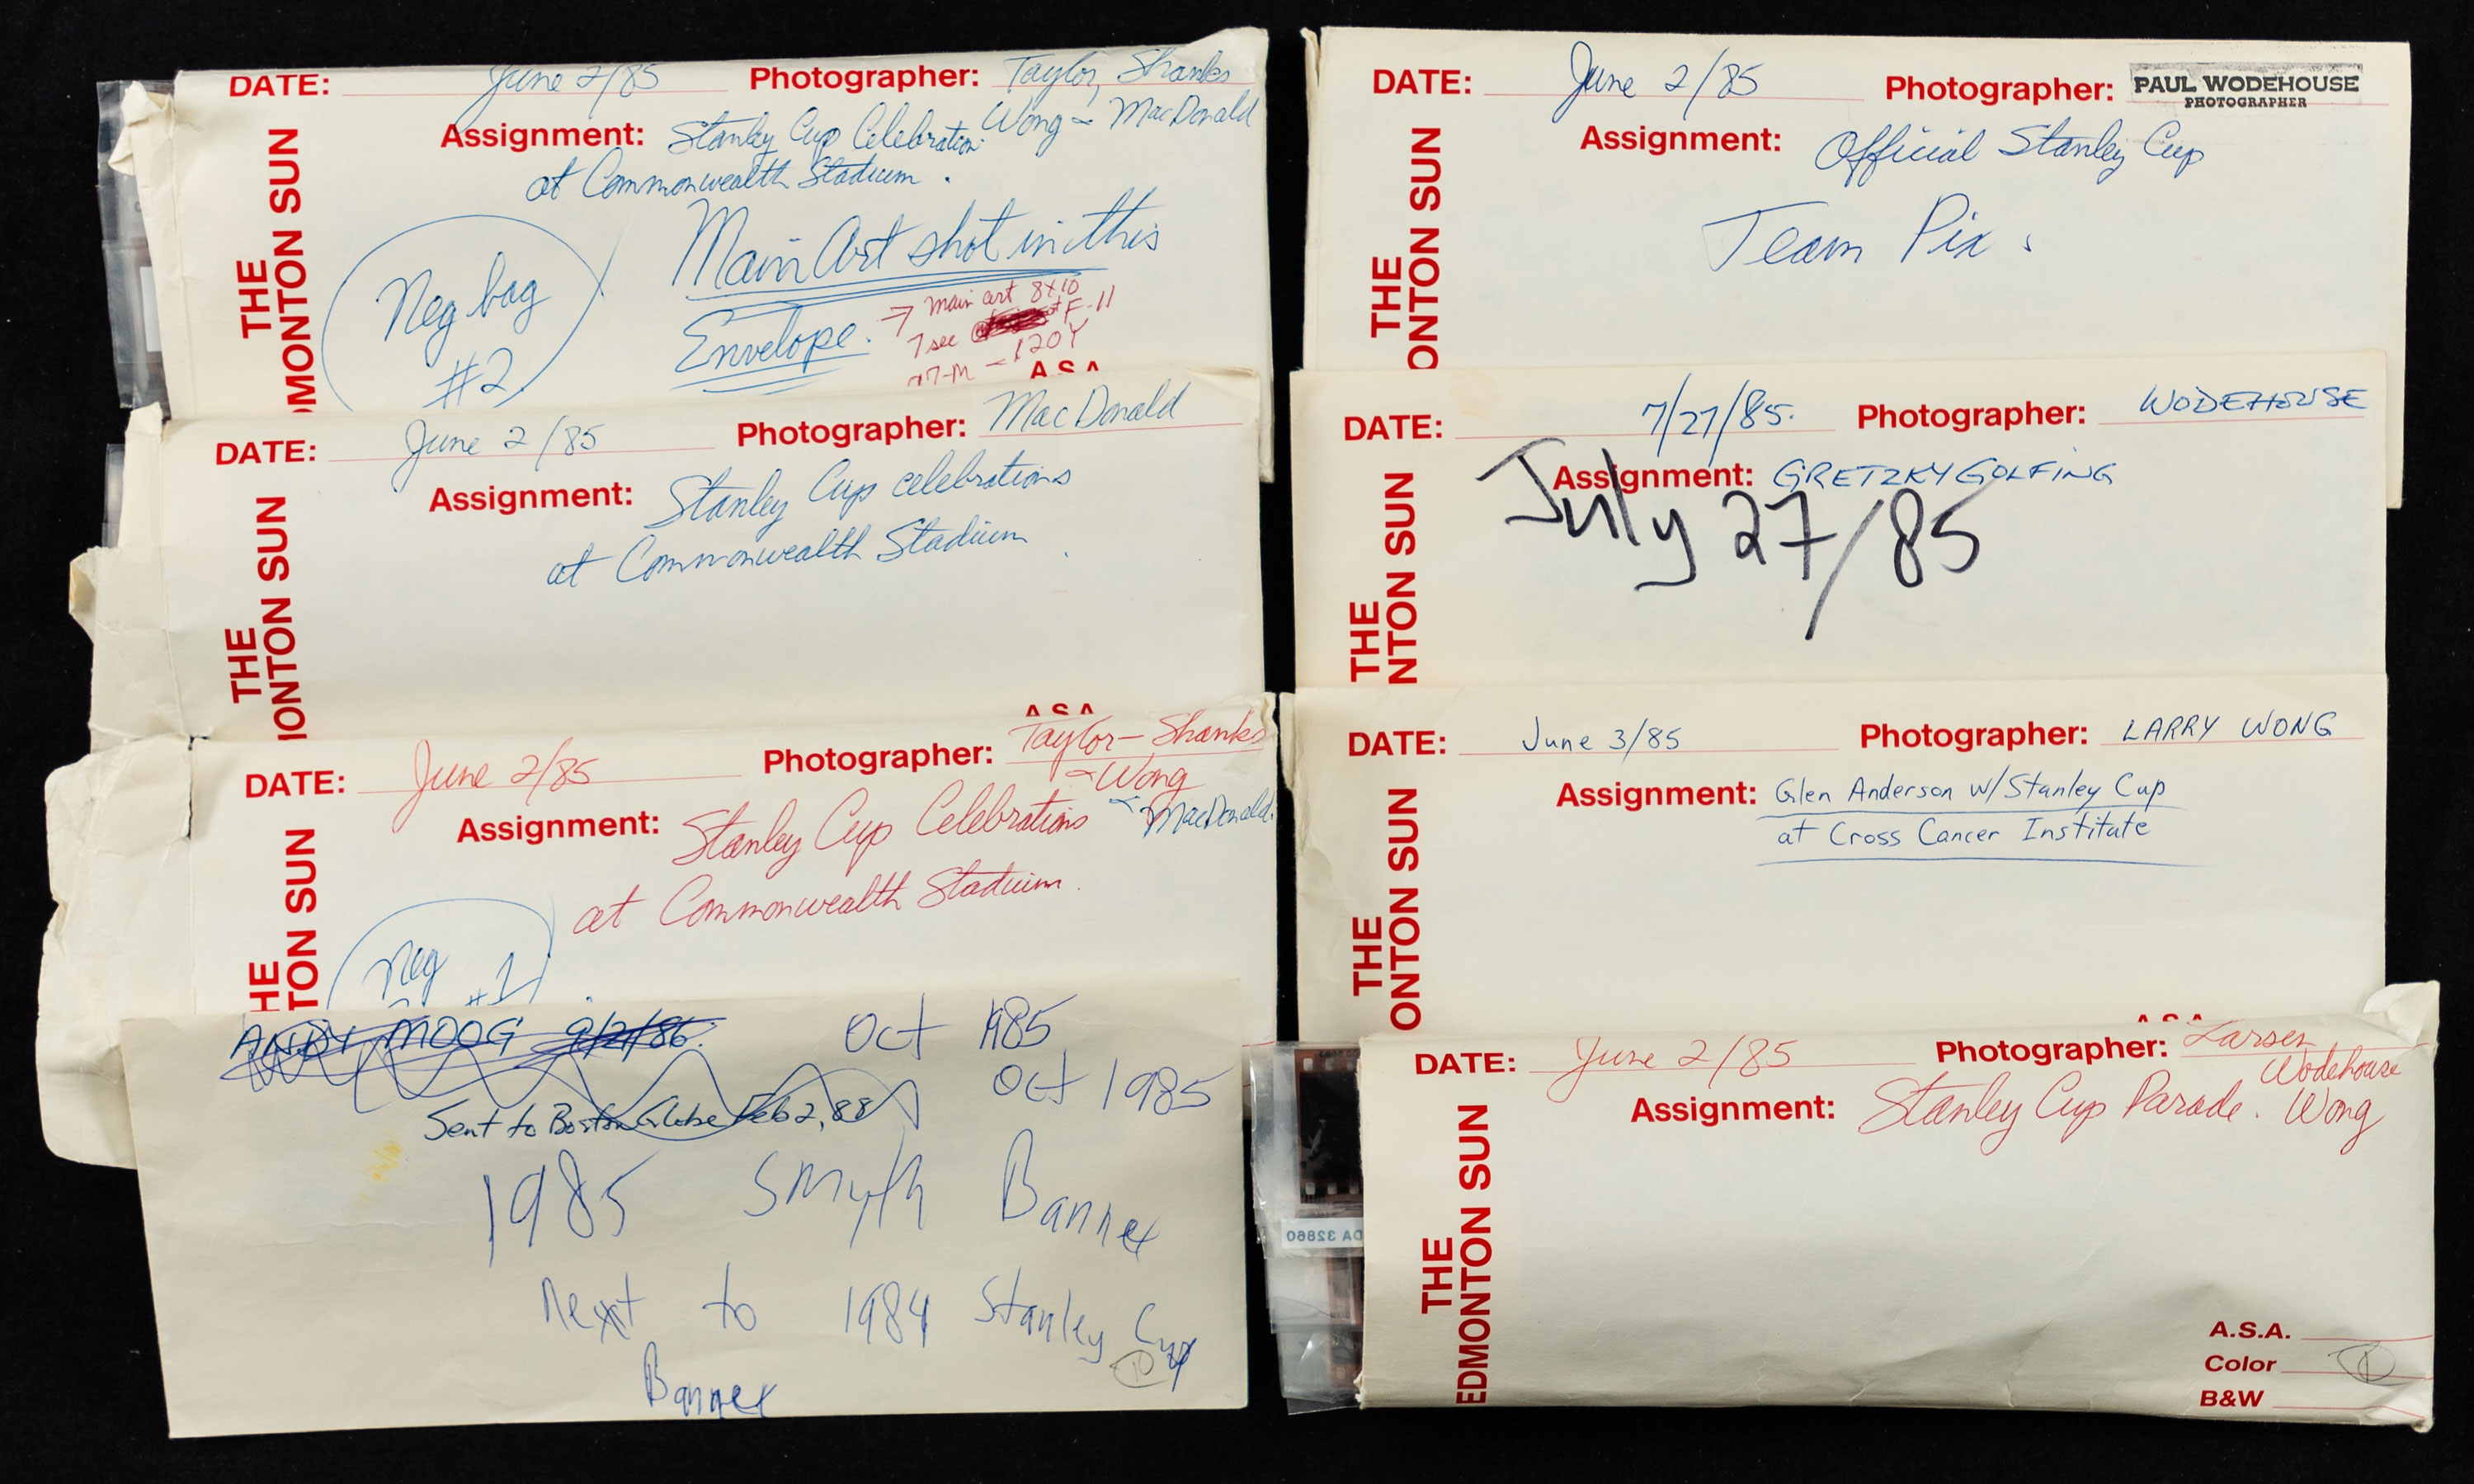 DATE: June 2/85 Photographer: Taylor, Shanks
Wong - MacDonald
Assignment: Stanley Cup Celebration
at Commonwealth Stadium.
THE
DMONTON SUN
Neg bag
#2
Main Art shot in this
Envelope.
→ Main art 8x10
7 sec F-11
120Y
ASA
DATE: June 2/85 Photographer: MacDonald
Assignment: Stanley Cup celebrations
at Commonwealth Stadium
THE
MONTON SUN
ASA
DATE: June 2/85 Photographer: Taylor - Shanks
- Wong
MacDonald.
Assignment: Stanley Cup Celebrations
at Commonwealth Stadium.
THE
NTON SUN
Neg
#1
ANDY MOOG 9/2/86.
Oct 1985
Oct 1985
Sent to Boston Globe Feb 2, 88
1985 Smyth Banner
Next to 1984 Stanley Cup
Banner
DATE: June 2/85 Photographer: PAUL WODEHOUSE
PHOTOGRAPHER
Assignment: Official Stanley Cup
Team Pix.
THE
ONTON SUN
DATE: 7/27/85. Photographer: WODEHOUSE
Assignment: GRETZKY GOLFING
July 27/85
THE
NTON SUN
DATE: June 3/85 Photographer: LARRY WONG
Assignment: Glen Anderson w/ Stanley Cup
at Cross Cancer Institute
THE
ONTON SUN
ASA
DATE: June 2/85 Photographer: Larsen
Wodehouse
Wong
Assignment: Stanley Cup Parade.
THE
EDMONTON SUN
DA 32860
A.S.A.
Color
B&W